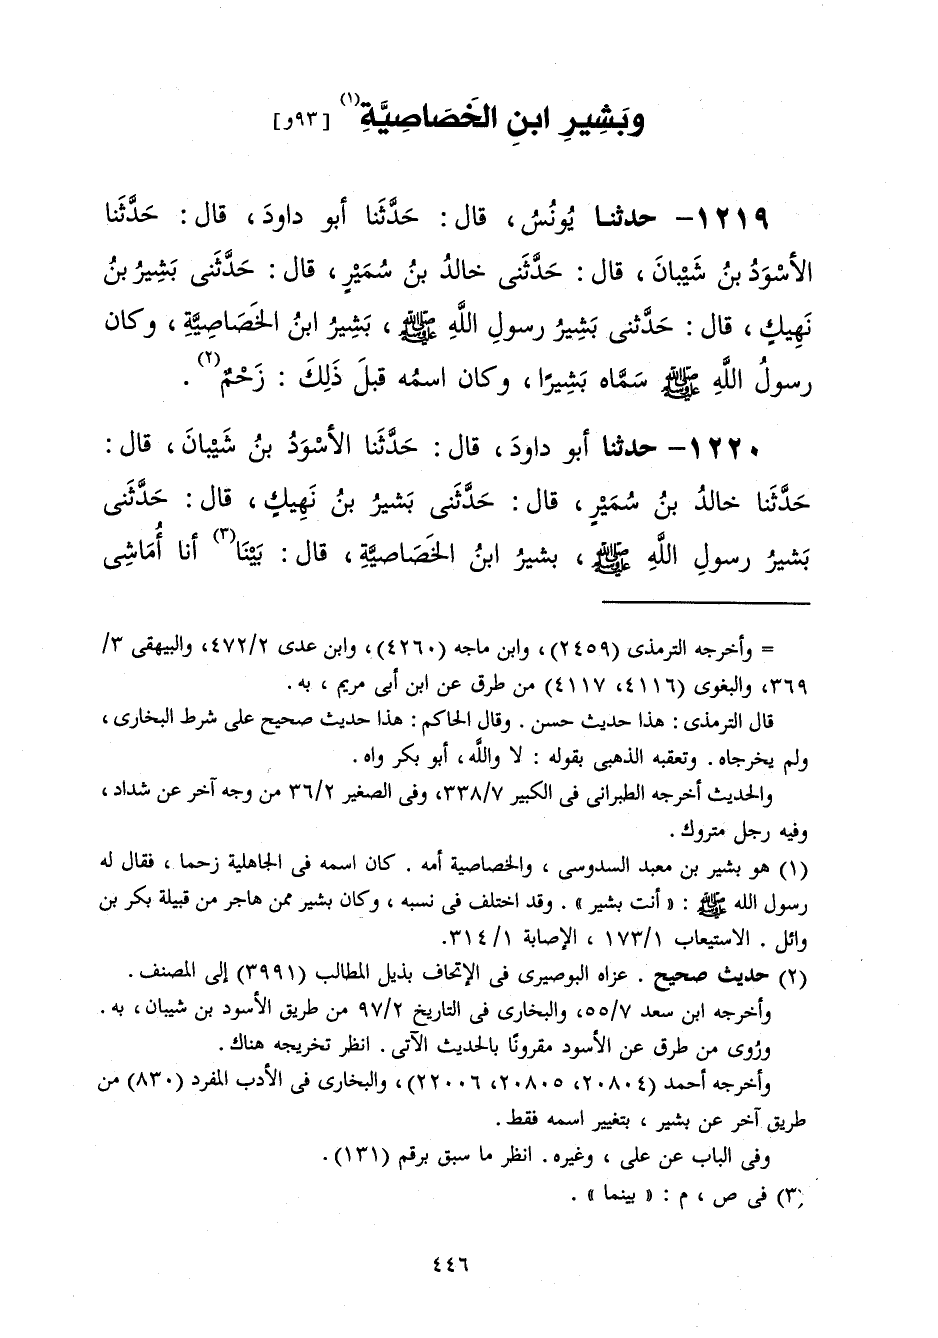 وبَشِيرِ ابنِ الخَصَاصِيَّةِ(١) [٩٣و]
١٢١٩- حدثنا يُونُسُ، قال: حَدَّثَنا أبو داودَ، قال: حَدَّثَنا
الأسْوَدُ بنُ شَيْبانَ، قال: حَدَّثَنى خالدُ بنُ سُمَيْرٍ، قال: حَدَّثَنى بَشِيرُ بنُ
نَهِيكٍ، قال: حَدَّثنى بَشِيرُ رسولِ اللَّهِ ﷺ، بَشِيرُ ابنُ الخَصَاصِيَّةِ، وكان
رسولُ اللَّهِ ﷺ سَمَّاه بَشِيرًا، وكان اسمُه قبلَ ذَلِكَ: زَحْمٌ(٢).
١٢٢٠- حدثنا أبو داودَ، قال: حَدَّثَنا الأسْوَدُ بنُ شَيْبانَ، قال:
حَدَّثَنا خالدُ بنُ سُمَيْرٍ، قال: حَدَّثَنى بَشيرُ بنُ نَهِيكٍ، قال: حَدَّثَنى
بَشيرُ رسولِ اللَّهِ ﷺ، بشيرُ ابنُ الخَصَاصيَّةِ، قال: بَيْنَا(٣) أنا أُمَاشِى
= وأخرجه الترمذى (٢٤٥٩)، وابن ماجه (٤٢٦٠)، وابن عدى ٤٧٢/٢، والبيهقى ٣/
٣٦٩، والبغوى (٤١١٦، ٤١١٧) من طرق عن ابن أبى مريم، به.
قال الترمذى: هذا حديث حسن. وقال الحاكم: هذا حديث صحيح على شرط البخارى،
ولم يخرجاه. وتعقبه الذهبى بقوله: لا واللَّه، أبو بكر واه.
والحديث أخرجه الطبرانى فى الكبير ٣٣٨/٧، وفى الصغير ٣٦/٢ من وجه آخر عن شداد،
وفيه رجل متروك.
(١) هو بشير بن معبد السدوسى، والخصاصية أمه. كان اسمه فى الجاهلية زحما، فقال له
رسول الله ﷺ: «أنت بشير». وقد اختلف فى نسبه، وكان بشير ممن هاجر من قبيلة بكر بن
وائل. الاستيعاب ١٧٣/١، الإصابة ٣١٤/١.
(٢) حديث صحيح. عزاه البوصيرى فى الإتحاف بذيل المطالب (٣٩٩١) إلى المصنف.
وأخرجه ابن سعد ٥٥/٧، والبخارى فى التاريخ ٩٧/٢ من طريق الأسود بن شيبان، به.
ورُوى من طرق عن الأسود مقرونًا بالحديث الآتى. انظر تخريجه هناك.
وأخرجه أحمد (٢٠٨٠٤، ٢٠٨٠٥، ٢٢٠٠٦)، والبخارى فى الأدب المفرد (٨٣٠) من
طريق آخر عن بشير، بتغيير اسمه فقط.
وفى الباب عن على، وغيره. انظر ما سبق برقم (١٣١).
(٣) فى ص، م: «بينما».
٤٤٦